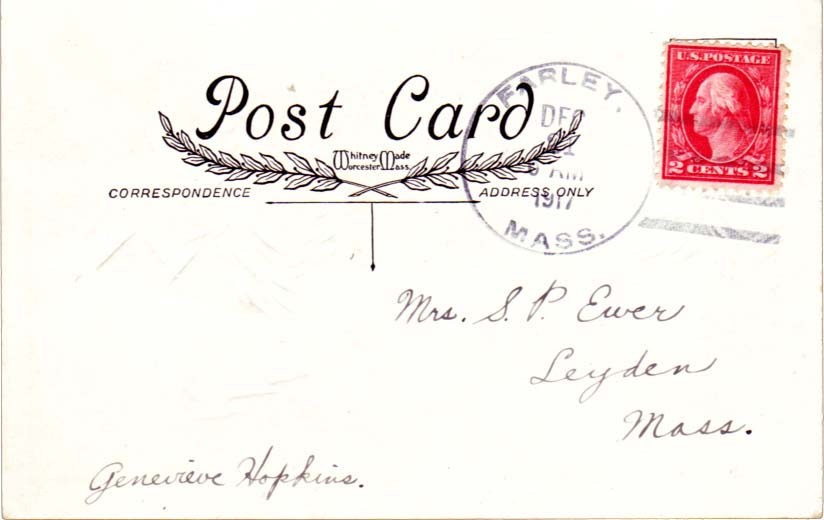 Post Card
Whitney Made
Worcester Mass.
CORRESPONDENCE
ADDRESS ONLY
FARLEY,
DEC
21
AM
1917
MASS.
U.S. POSTAGE
2 CENTS 2
Mrs. S. P. Ewer
Leyden
Mass.
Genevieve Hopkins.